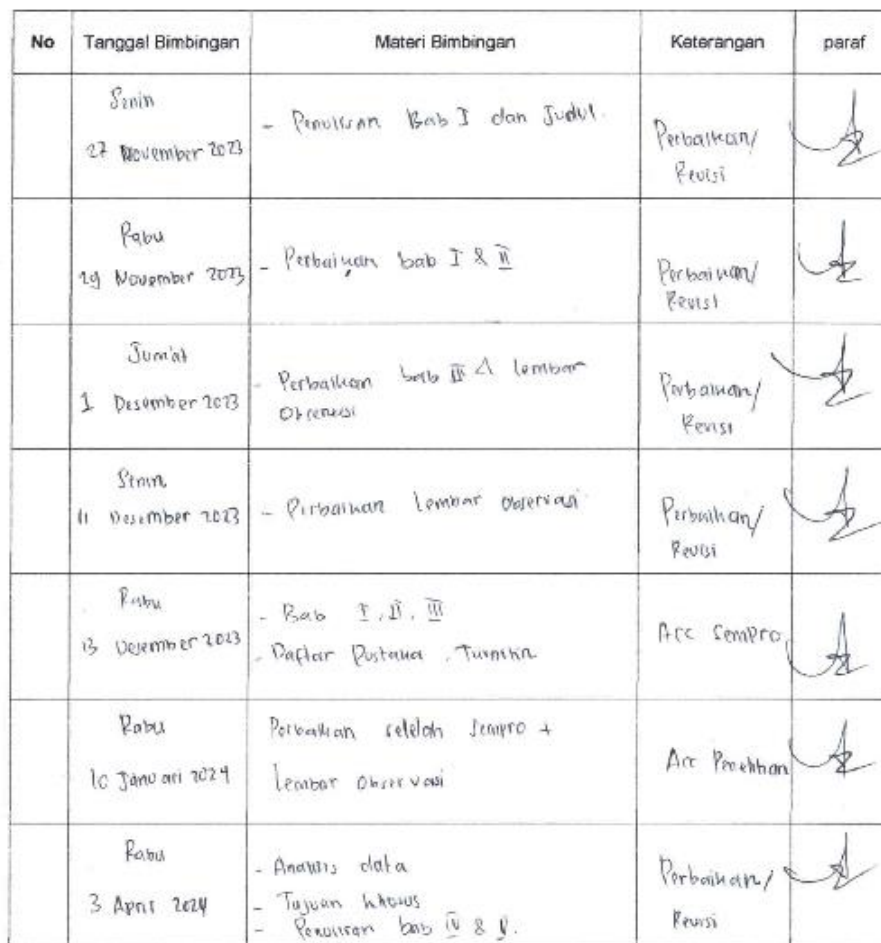 No Tanggal Bimbingan Materi Bimbingan Keterangan paraf
Senin
27 November 2023
- Penulisan Bab I dan Judul.
Perbaikan/
Revisi
Rabu
29 November 2023
- Perbaikan bab I & II
Perbaikan/
Revisi
Jum'at
1 Desember 2023
- Perbaikan bab III & lembar
Observasi
Perbaikan/
Revisi
Senin
11 Desember 2023
- Perbaikan lembar observasi
Perbaikan/
Revisi
Rabu
13 Desember 2023
- Bab I, II, III
- Daftar Pustaka, Turnitin
Acc Sempro
Rabu
10 Januari 2024
Perbaikan setelah Sempro +
Lembar Observasi
Acc Penelitian
Rabu
3 April 2024
- Analisis data
- Tujuan khusus
- Penulisan bab IV & V.
Perbaikan/
Revisi